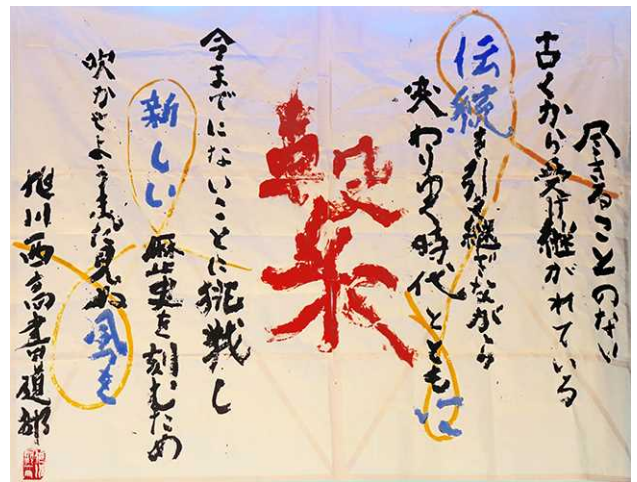 尽きることのない
古くから受け継がれている
伝統を引き継ぎながら
変わりゆく時代とともに
繋
今までにないことに挑戦し
新しい歴史を刻むため
吹かせようまだ見ぬ風を
旭川西高書道部